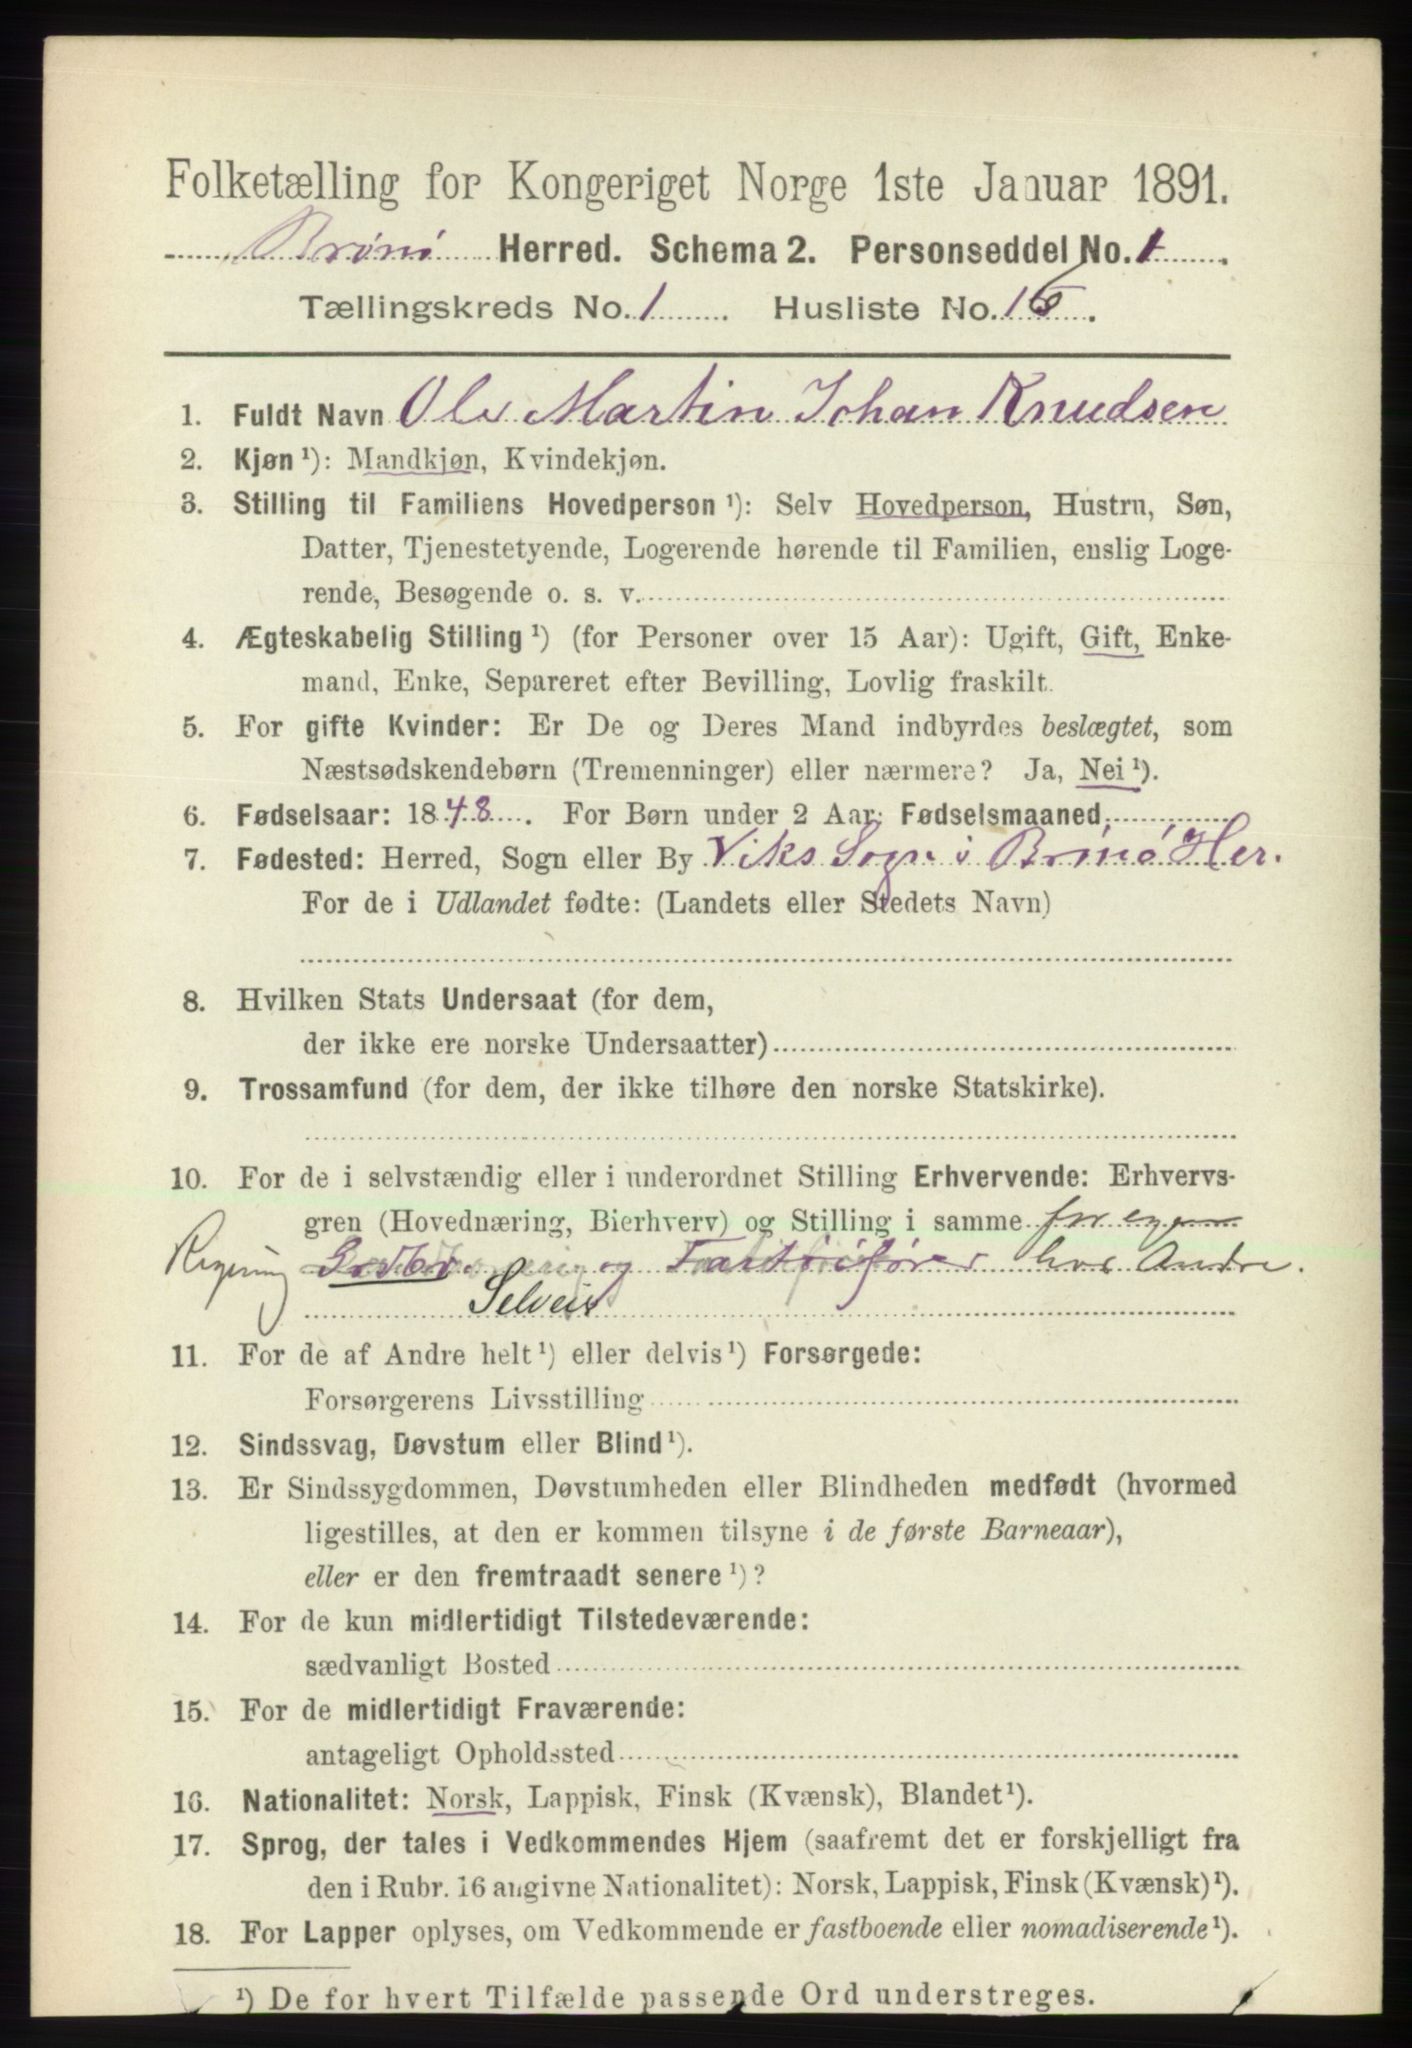 Folketælling for Kongeriget Norge 1ste Januar 1891.
Brønø Herred. Schema 2. Personseddel No. 1
Tællingskreds No. 1 Husliste No. 15
1. Fuldt Navn Ole Martin Johan Knudsen
2. Kjøn ¹): Mandkjøn, Kvindekjøn.
3. Stilling til Familiens Hovedperson ¹): Selv Hovedperson, Hustru, Søn,
Datter, Tjenestetyende, Logerende hørende til Familien, enslig Loge-
rende, Besøgende o. s. v.
4. Ægteskabelig Stilling ¹) (for Personer over 15 Aar): Ugift, Gift, Enke-
mand, Enke, Separeret efter Bevilling, Lovlig fraskilt.
5. For gifte Kvinder: Er De og Deres Mand indbyrdes beslægtet, som
Næstsødskendebørn (Tremenninger) eller nærmere? Ja, Nei ¹).
6. Fødselsaar: 1848. For Børn under 2 Aar: Fødselsmaaned
7. Fødested: Herred, Sogn eller By Viks Sogn i Brønø Her.
For de i Udlandet fødte: (Landets eller Stedets Navn)
8. Hvilken Stats Undersaat (for dem,
der ikke ere norske Undersaatter)
9. Trossamfund (for dem, der ikke tilhøre den norske Statskirke).
10. For de i selvstændig eller i underordnet Stilling Erhvervende: Erhvervs-
gren (Hovednæring, Bierhverv) og Stilling i samme for egen
og hos Andre.
Selveier
11. For de af Andre helt ¹) eller delvis ¹) Forsørgede:
Forsørgerens Livsstilling
12. Sindssvag, Døvstum eller Blind ¹).
13. Er Sindssygdommen, Døvstumheden eller Blindheden medfødt (hvormed
ligestilles, at den er kommen tilsyne i de første Barneaar),
eller er den fremtraadt senere ¹)?
14. For de kun midlertidigt Tilstedeværende:
sædvanligt Bosted
15. For de midlertidigt Fraværende:
antageligt Opholdssted
16. Nationalitet: Norsk, Lappisk, Finsk (Kvænsk), Blandet ¹).
17. Sprog, der tales i Vedkommendes Hjem (saafremt det er forskjelligt fra
den i Rubr. 16 angivne Nationalitet): Norsk, Lappisk, Finsk (Kvænsk) ¹).
18. For Lapper oplyses, om Vedkommende er fastboende eller nomadiserende ¹).
¹) De for hvert Tilfælde passende Ord understreges.